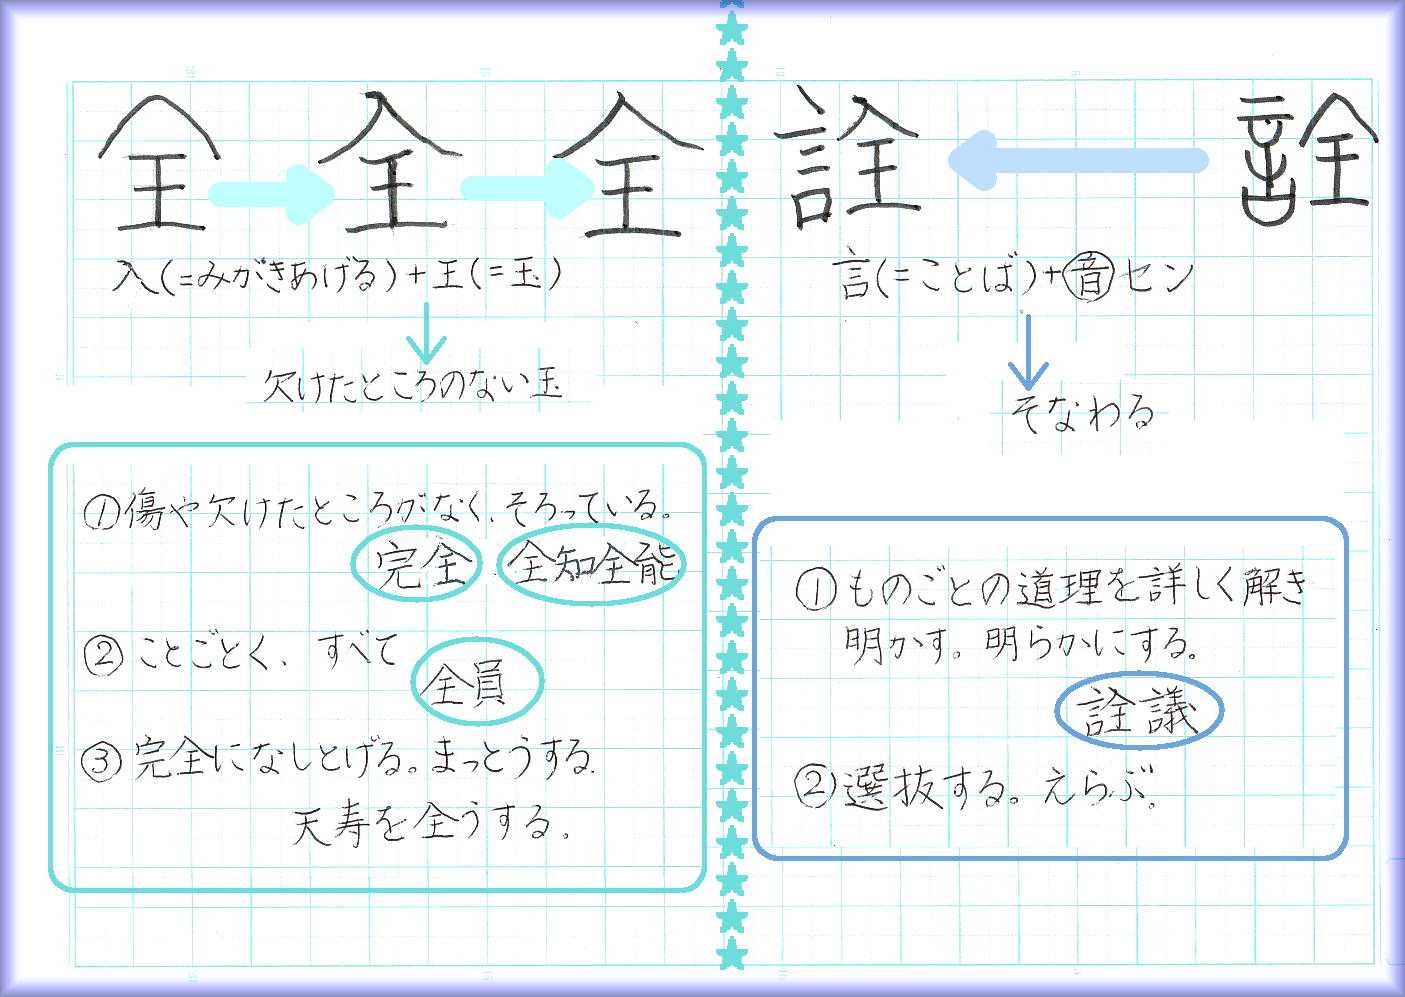 全 全 全
入(=みがきあげる)+王(=玉)
欠けたところのない玉
①傷や欠けたところがなく、そろっている。
完全 全知全能
②ことごとく、すべて
全員
③完全になしとげる。まっとうする.
天寿を全うする。
詮 詮
言(=ことば)+音セン
そなわる
①ものごとの道理を詳しく解き
明かす。明らかにする。
詮議
②選抜する。えらぶ。